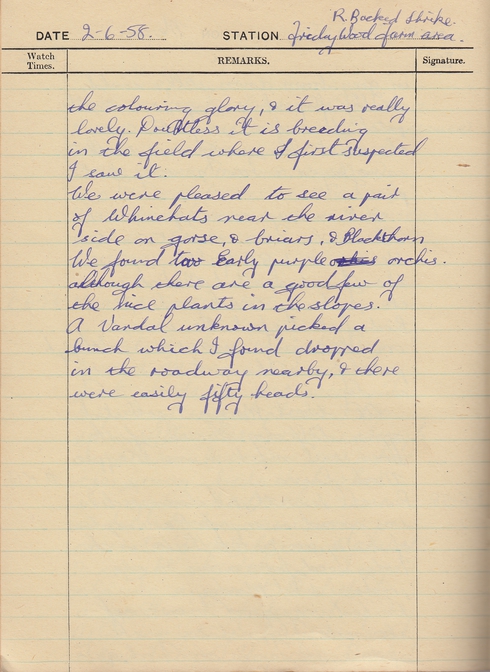 R. Backed Shrike.
DATE 2-6-58. STATION Friday Wood farm area.
Watch Times. REMARKS. Signature.
the colouring glory, & it was really
lovely. Doubtless it is breeding
in the field where I first suspected
I saw it.
We were pleased to see a pair
of Whinchats near the river
side on gorse, & briars, & Blackthorn
We found two Early purple orchis.
although there are a good few of
the nice plants in the slopes.
A Vandal unknown picked a
bunch which I found dropped
in the roadway nearby, & there
were easily fifty heads.